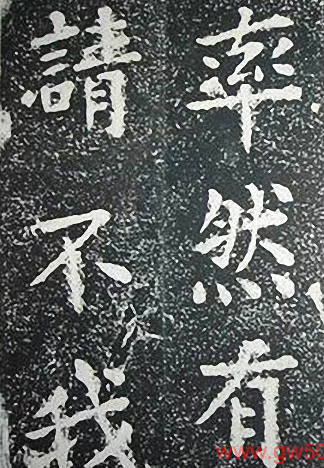 率然有
請不我
www.gw50